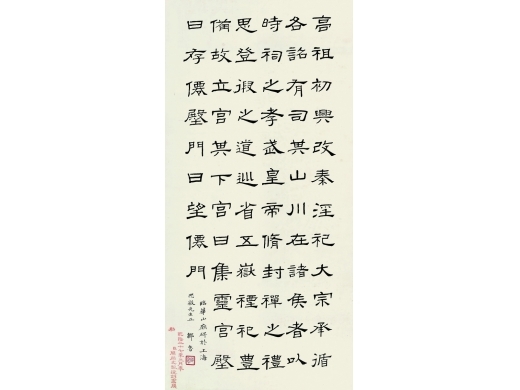 高祖初興改秦淫祀大宗承循
各詔有司其山川在諸侯者以
時祠之孝武皇帝脩封禪之禮
思登徦之道巡省五嶽禋祀豐
備故立宮其下宮曰集靈宮殿
曰存僊殿門曰望僊門
臨華山廟碑於上海
先生正